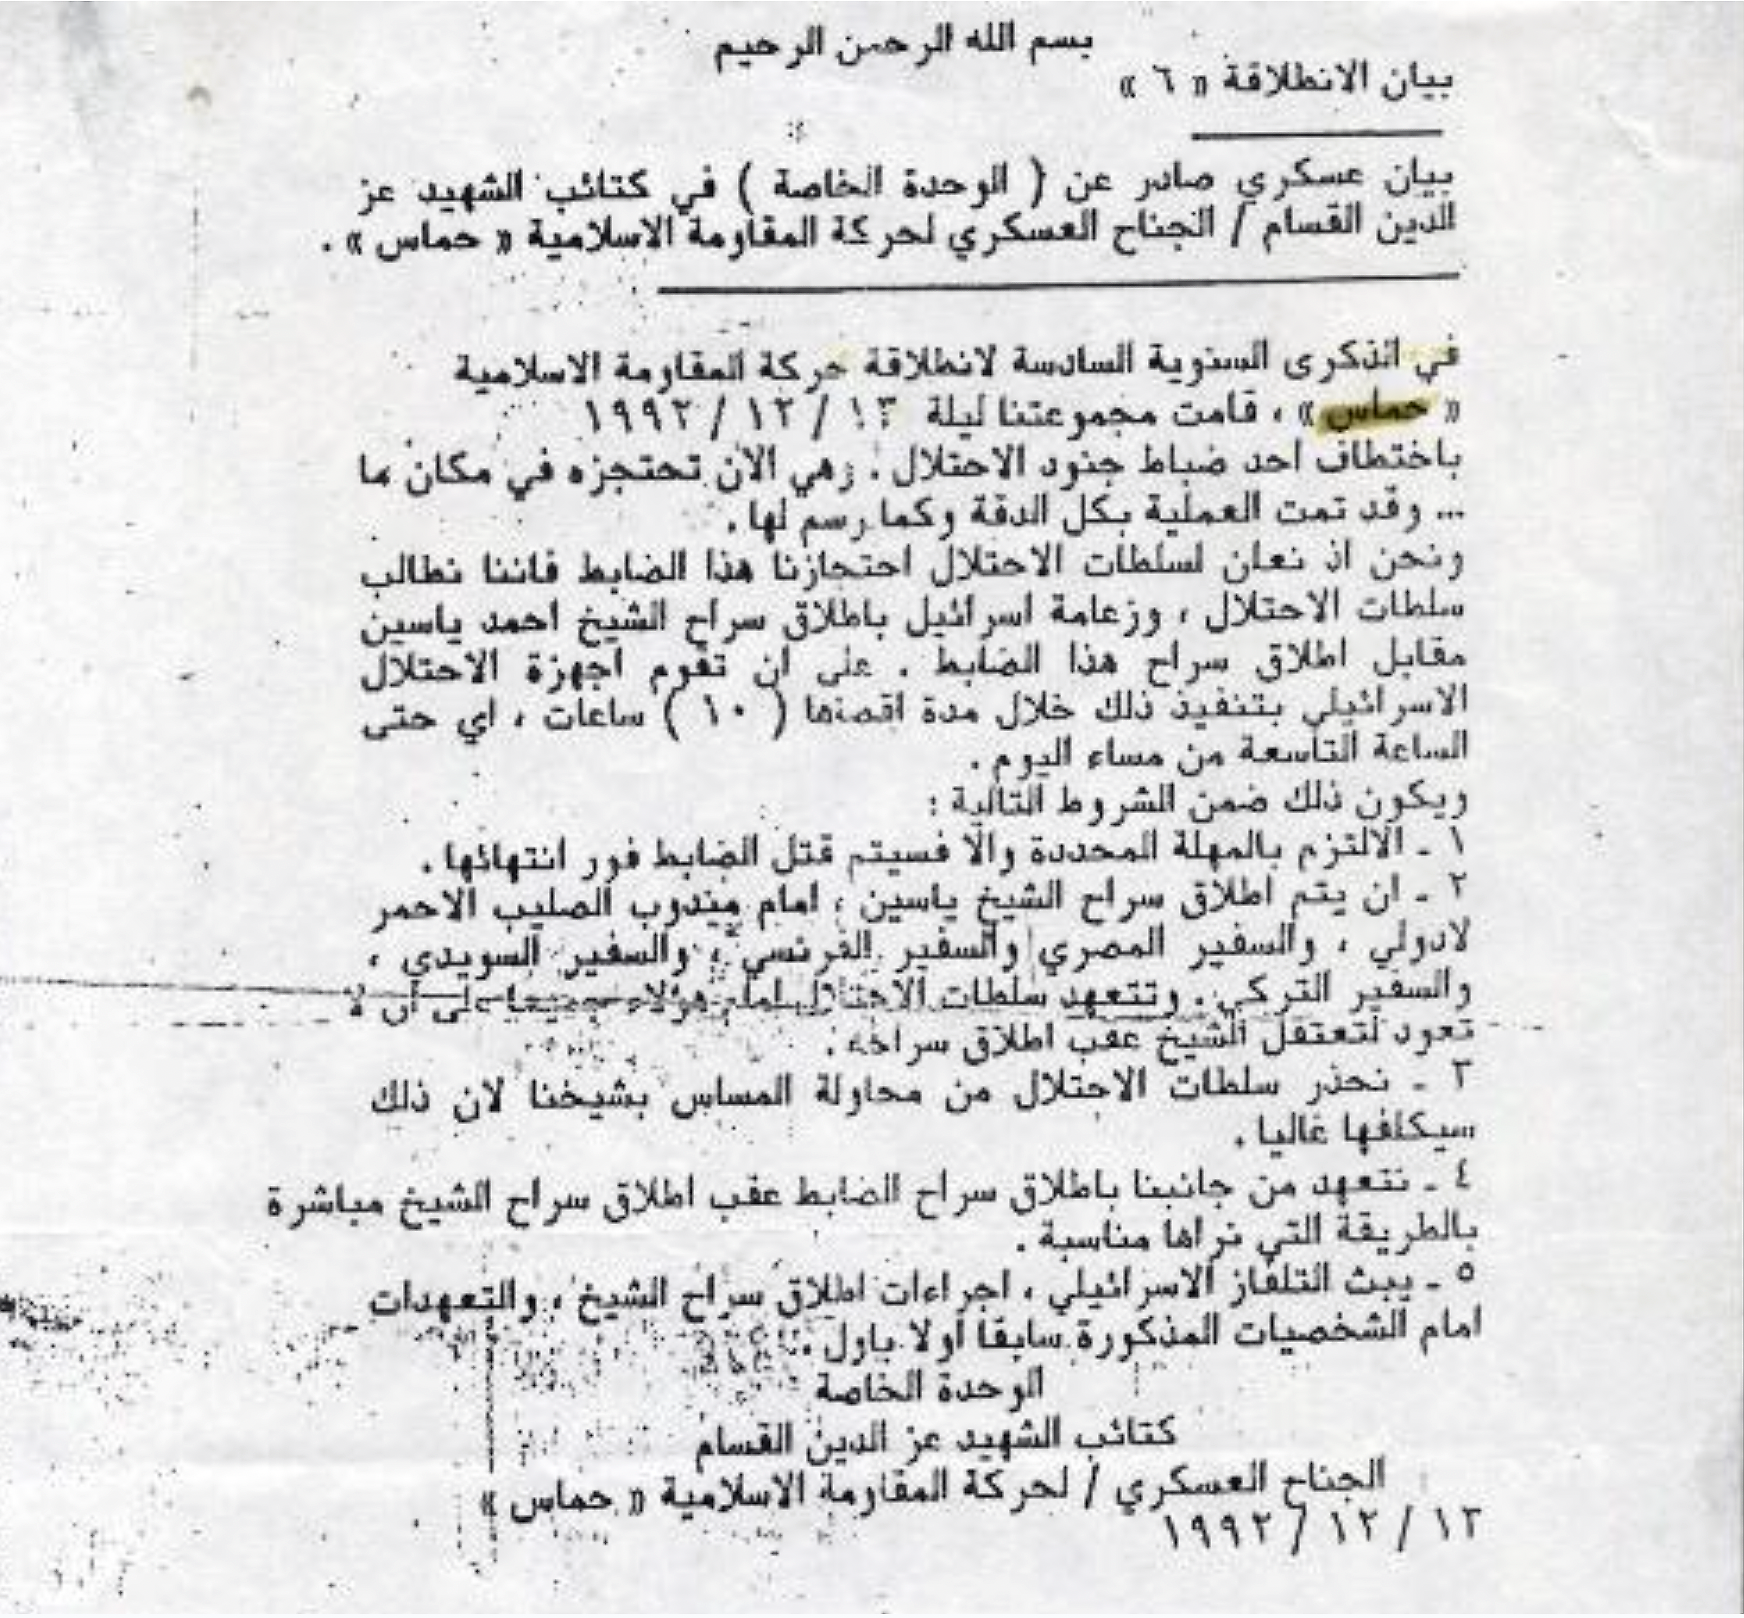 بسم الله الرحمن الرحيم
بيان الانطلاقة « ٦ »
بيان عسكري صادر عن ( الوحدة الخاصة ) في كتائب الشهيد عز
الدين القسام / الجناح العسكري لحركة المقاومة الاسلامية « حماس » .
في الذكرى السنوية السادسة لانطلاقة حركة المقاومة الاسلامية
« حماس » ، قامت مجموعتنا ليلة ١٣ / ١٢ / ١٩٩٢
باختطاف احد ضباط جنود الاحتلال . وهي الان تحتجزه في مكان ما
... وقد تمت العملية بكل الدقة وكما رسم لها .
ونحن اذ نعلن لسلطات الاحتلال احتجازنا هذا الضابط فاننا نطالب
سلطات الاحتلال ، وزعامة اسرائيل باطلاق سراح الشيخ احمد ياسين
مقابل اطلاق سراح هذا الضابط . على ان تقوم اجهزة الاحتلال
الاسرائيلي بتنفيذ ذلك خلال مدة اقصاها ( ١٠ ) ساعات ، اي حتى
الساعة التاسعة من مساء اليوم .
ويكون ذلك ضمن الشروط التالية :
١ ـ الالتزم بالمهلة المحددة والا فسيتم قتل الضابط فور انتهائها .
٢ ـ ان يتم اطلاق سراح الشيخ ياسين ، امام مندوب الصليب الاحمر
لادولي ، والسفير المصري والسفير الفرنسي ، والسفير السويدي ،
والسفير التركي . وتتعهد سلطات الاحتلال امام هؤلاء جميعا على ان لا
تعود لتعتقل الشيخ عقب اطلاق سراحه .
٣ ـ نحذر سلطات الاحتلال من محاولة المساس بشيخنا لان ذلك
سيكلفها غاليا .
٤ ـ نتعهد من جانبنا باطلاق سراح الضابط عقب اطلاق سراح الشيخ مباشرة
بالطريقة التي نراها مناسبة .
٥ ـ يبث التلفاز الاسرائيلي ، اجراءات اطلاق سراح الشيخ ، والتعهدات
امام الشخصيات المذكورة سابقا اولا باول .
الوحدة الخاصة
كتائب الشهيد عز الدين القسام
الجناح العسكري / لحركة المقاومة الاسلامية « حماس »
١٣ / ١٢ / ١٩٩٢